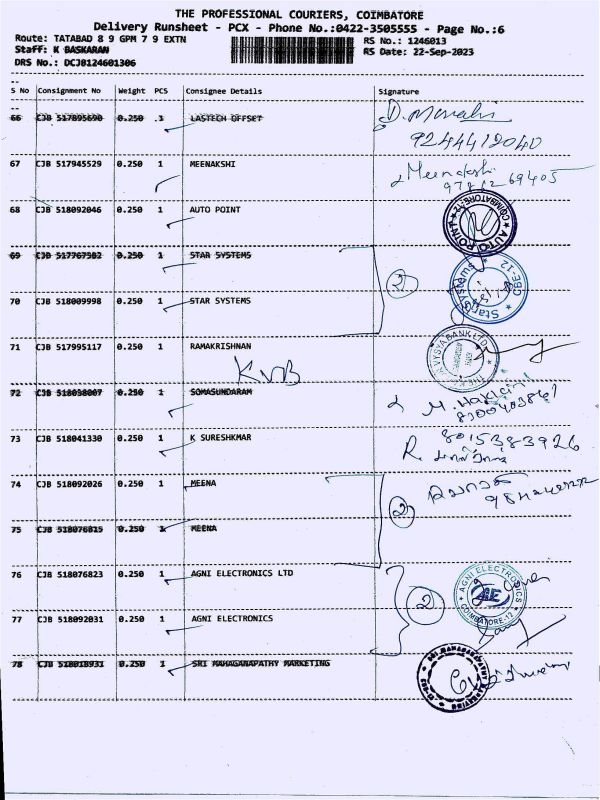 THE PROFESSIONAL COURIERS, COIMBATORE
Delivery Runsheet - PCX - Phone No.:0422-3505555 - Page No.:6
Route: TATABAD 8 9 GPM 7 9 EXTN RS No.: 1246013
Staff: K BASKARAN RS Date: 22-Sep-2023
DRS No.: DCJB124601306
S No Consignment No Weight PCS Consignee Details Signature
66 CJB 517895690 0.250 1 LASTECH OFFSET
9244412040
67 CJB 517945529 0.250 1 MEENAKSHI Meenakshi
68 CJB 518092046 0.250 1 AUTO POINT AUTO POINT COIMBATORE-12
69 CJB 517767582 0.250 1 STAR SYSTEMS 2 Star Systems CBE-12
70 CJB 518009998 0.250 1 STAR SYSTEMS
71 CJB 517995117 0.250 1 RAMAKRISHNAN VYSYA BANK LTD
KVB
72 CJB 518058007 0.250 1 SOMASUNDARAM
73 CJB 518041330 0.250 1 K SURESHKMAR 8015383926
74 CJB 518092026 0.250 1 MEENA 2
75 CJB 518076815 0.250 1 MEENA
76 CJB 518076823 0.250 1 AGNI ELECTRONICS LTD 2 AGNI ELECTRONICS AE COIMBATORE-12
77 CJB 518092031 0.250 1 AGNI ELECTRONICS
78 CJB 518018931 0.250 1 SRI MAHAGANAPATHY MARKETING